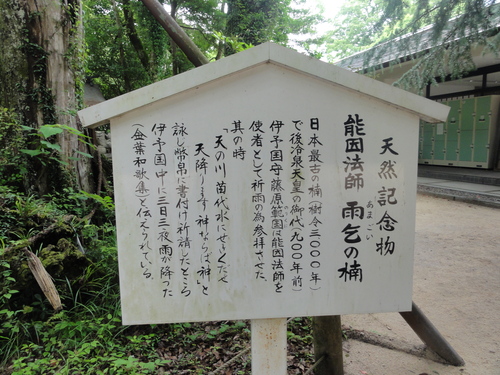 天然記念物
能因法師 雨乞の楠
あまごい
日本最古の楠(樹令三〇〇〇年)
で後冷泉天皇の御代(九〇〇年前)
伊予国守藤原範国は能因法師を
使者として祈雨の為参拝させた
其の時
「天の川 苗代水にせきくだせ
天降ります神ならば神」と
詠し幣帛に書付け祈請したところ
伊予国中に三日三夜雨が降った
(金葉和歌集)と伝えられている。